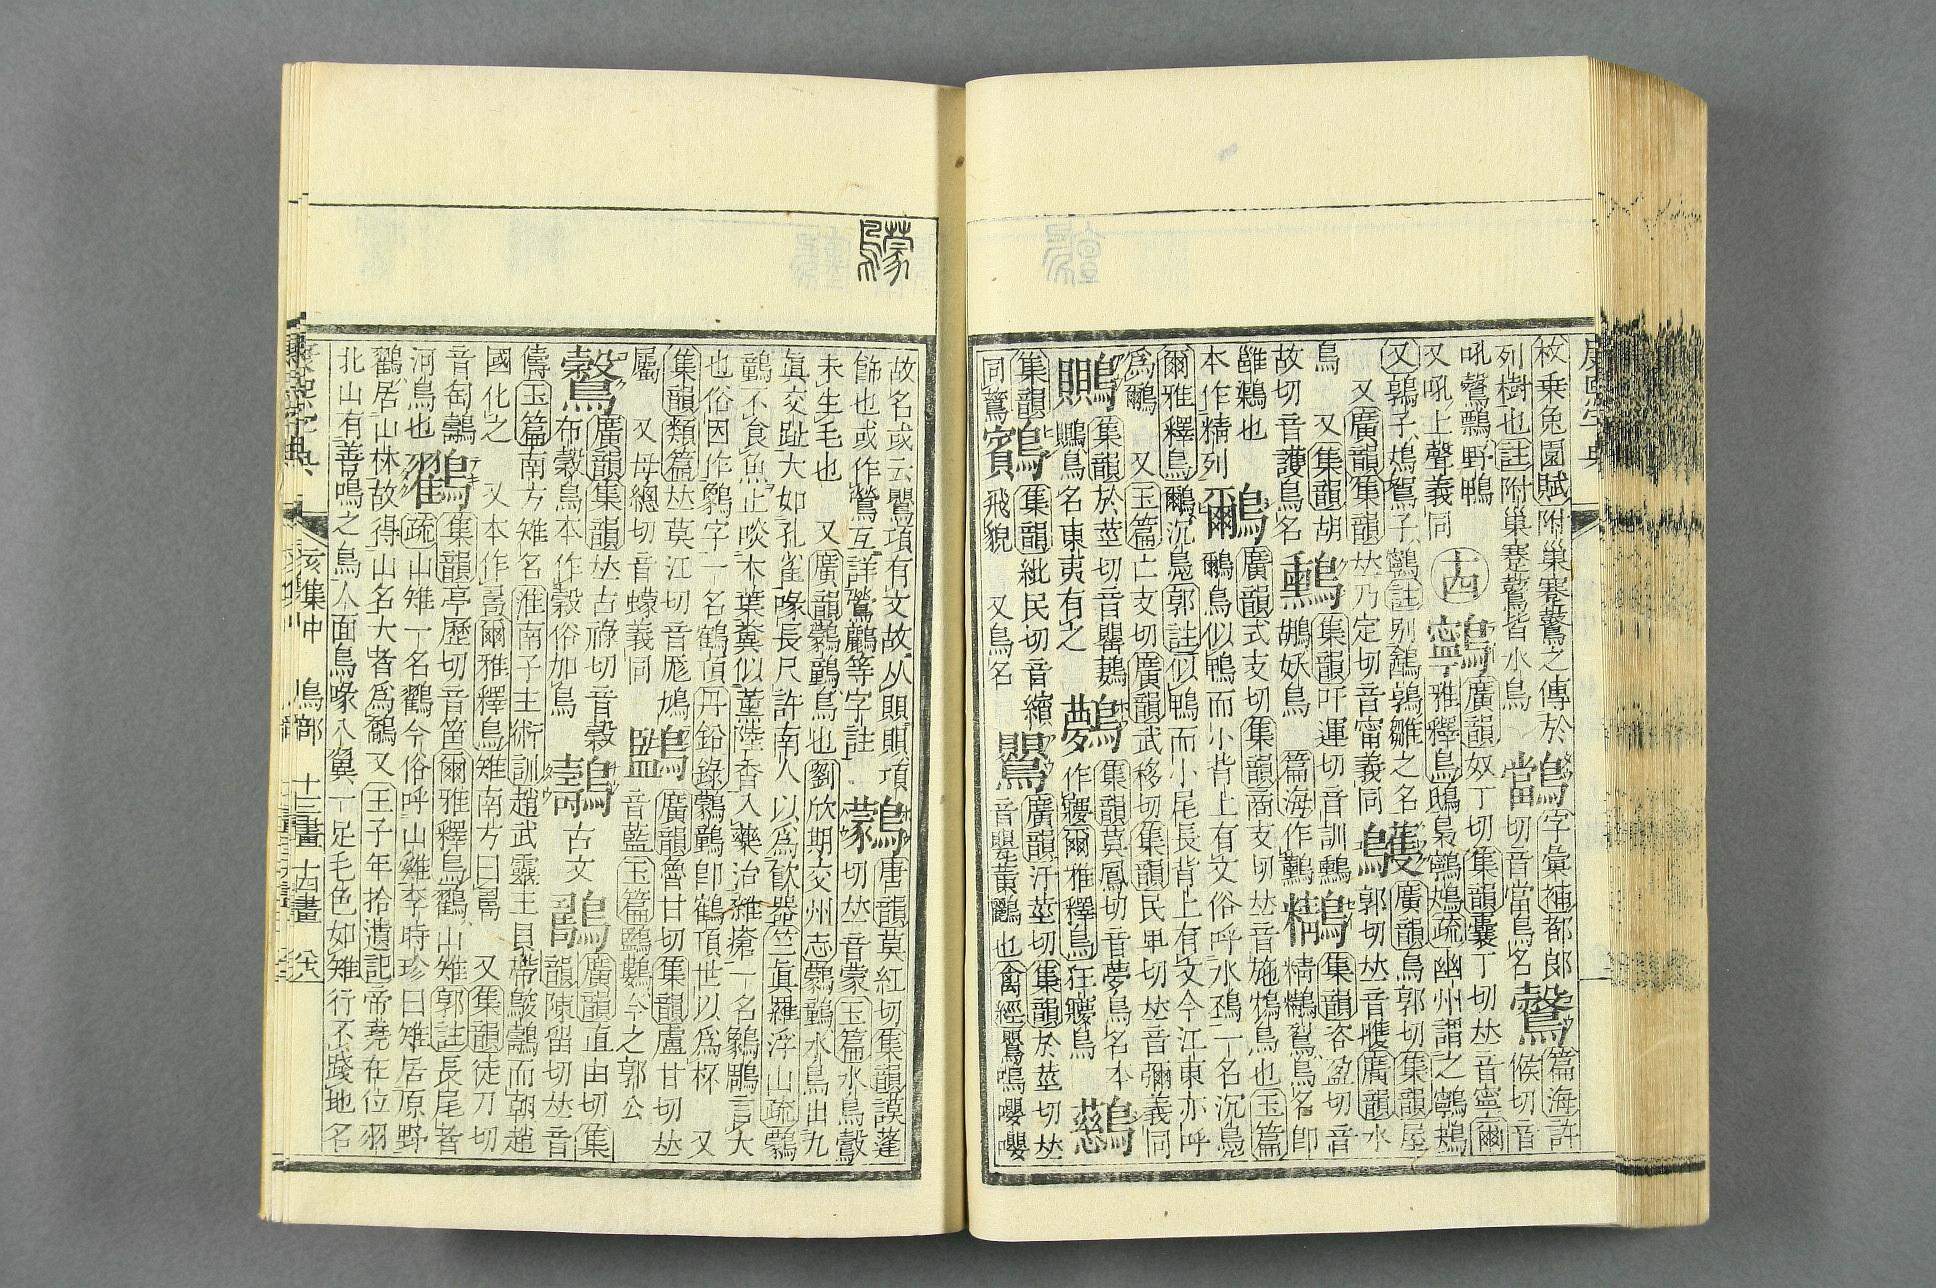 康熙字典
枚乗兔園賦附巢蹇鷟之傳於
列樹也註附巢蹇鷟皆水鳥
鸘字彙補都郎
切音當鳥名
鷔篇海許
候切音
吼鷔鸘野鴨
又吼上聲義同
十四
鸋廣韻奴丁切集韻囊丁切𠀤音寧爾
雅釋鳥鴟梟鸋鴂疏幽州謂之鸋鴂
又鶉子鳼鴽子鸋註别鷂鶉雛之名
又廣韻集韻𠀤乃定切音甯義同
鸌廣韻烏郭切集韻屋
郭切𠀤音臒廣韻水
鳥 又集韻胡
故切音護鳥名
集韻吁運切音訓
鶘妖鳥 篇海作
集韻咨盈切音
精鶄鳥名卽
雝鶏也
本作精列
鸍廣韻式支切集韻商支切𠀤音施鳲鳥也玉篇
鸍鳥似鴨而小背上有文俗呼水鵶一名沉鳧
爾雅釋鳥鸍沉鳧郭註似鴨而小尾長背上有文今江東亦呼
爲鸍 又玉篇亡支切廣韻武移切集韻民𤰞切𠀤音彌義同
集韻於莖切音罌
鳥名東夷有之
集韻莫鳳切音夢鳥名本
作爾雅釋鳥狂鳥
集韻紕民切音繽
飛貌 又鳥名
廣韻汙莖切集韻於莖切𠀤
音甖黃鸝也禽經鸎鳴嚶嚶
故名或云鸎項有文故从賏賏項
飾也或作鶯互詳鶯鸝等字註
鸏唐韻莫紅切集韻謨蓬
切𠀤音蒙玉篇水鳥鷇
未生毛也 又廣韻鸏鸛鳥也劉欣期交州志鸏鸛水鳥出九
眞交趾大如孔雀喙長尺許南人以爲飮器竺眞羅浮山疏鸏
鸛不食魚止啖木葉糞似薰陸香入藥治雜瘡一名鸏鵰言大
也俗因作鸏字一名鶴頂丹鉛錄鸏鸛卽鶴頂世以爲杯 又
集韻類篇𠀤莫江切音厖鳩
屬 又母總切音蠓義同
廣韻魯甘切集韻盧甘切𠀤
音藍玉篇今之郭公
廣韻集韻𠀤古祿切音穀
布穀鳥本作穀俗加鳥
古文
廣韻直由切集
韻陳留切𠀤音
儔玉篇南方雉名淮南子主術訓趙武靈王貝帶鵕鸃而朝趙
國化之 又本作爾雅釋鳥雉南方曰 又集韻徒刀切
音匋
河鳥也
集韻亭歷切音笛爾雅釋鳥鸐山雉郭註長尾者
疏山雉一名鸐今俗呼山雞李時珍曰雉居原野
鸐居山林故得山名大者爲鸐又王子年拾遺記帝堯在位羽
北山有善鳴之鳥人面鳥喙八翼一足毛色如雉行不踐地名
康熙字典 亥集中 鳥部 十三畫 十四畫